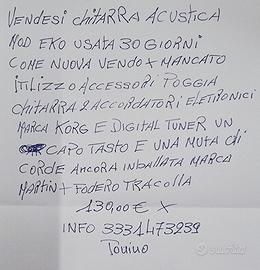 VENDESI CHITARRA ACUSTICA
MOD EKO USATA 30 GIORNI
COME NUOVA VENDO X MANCATO
ITILIZZO ACCESSORI POGGIA
CHITARRA 2 ACCORDATORI ELETRONICI
MARCA KORG E DIGITAL TUNER UN
CAPO TASTO E UNA MUTA di
CORDE ANCORA INBALLATA MARCA
MARTIN + FODERO TRACOLLA
130,00 € X
INFO 3331473239
Tonino
subito